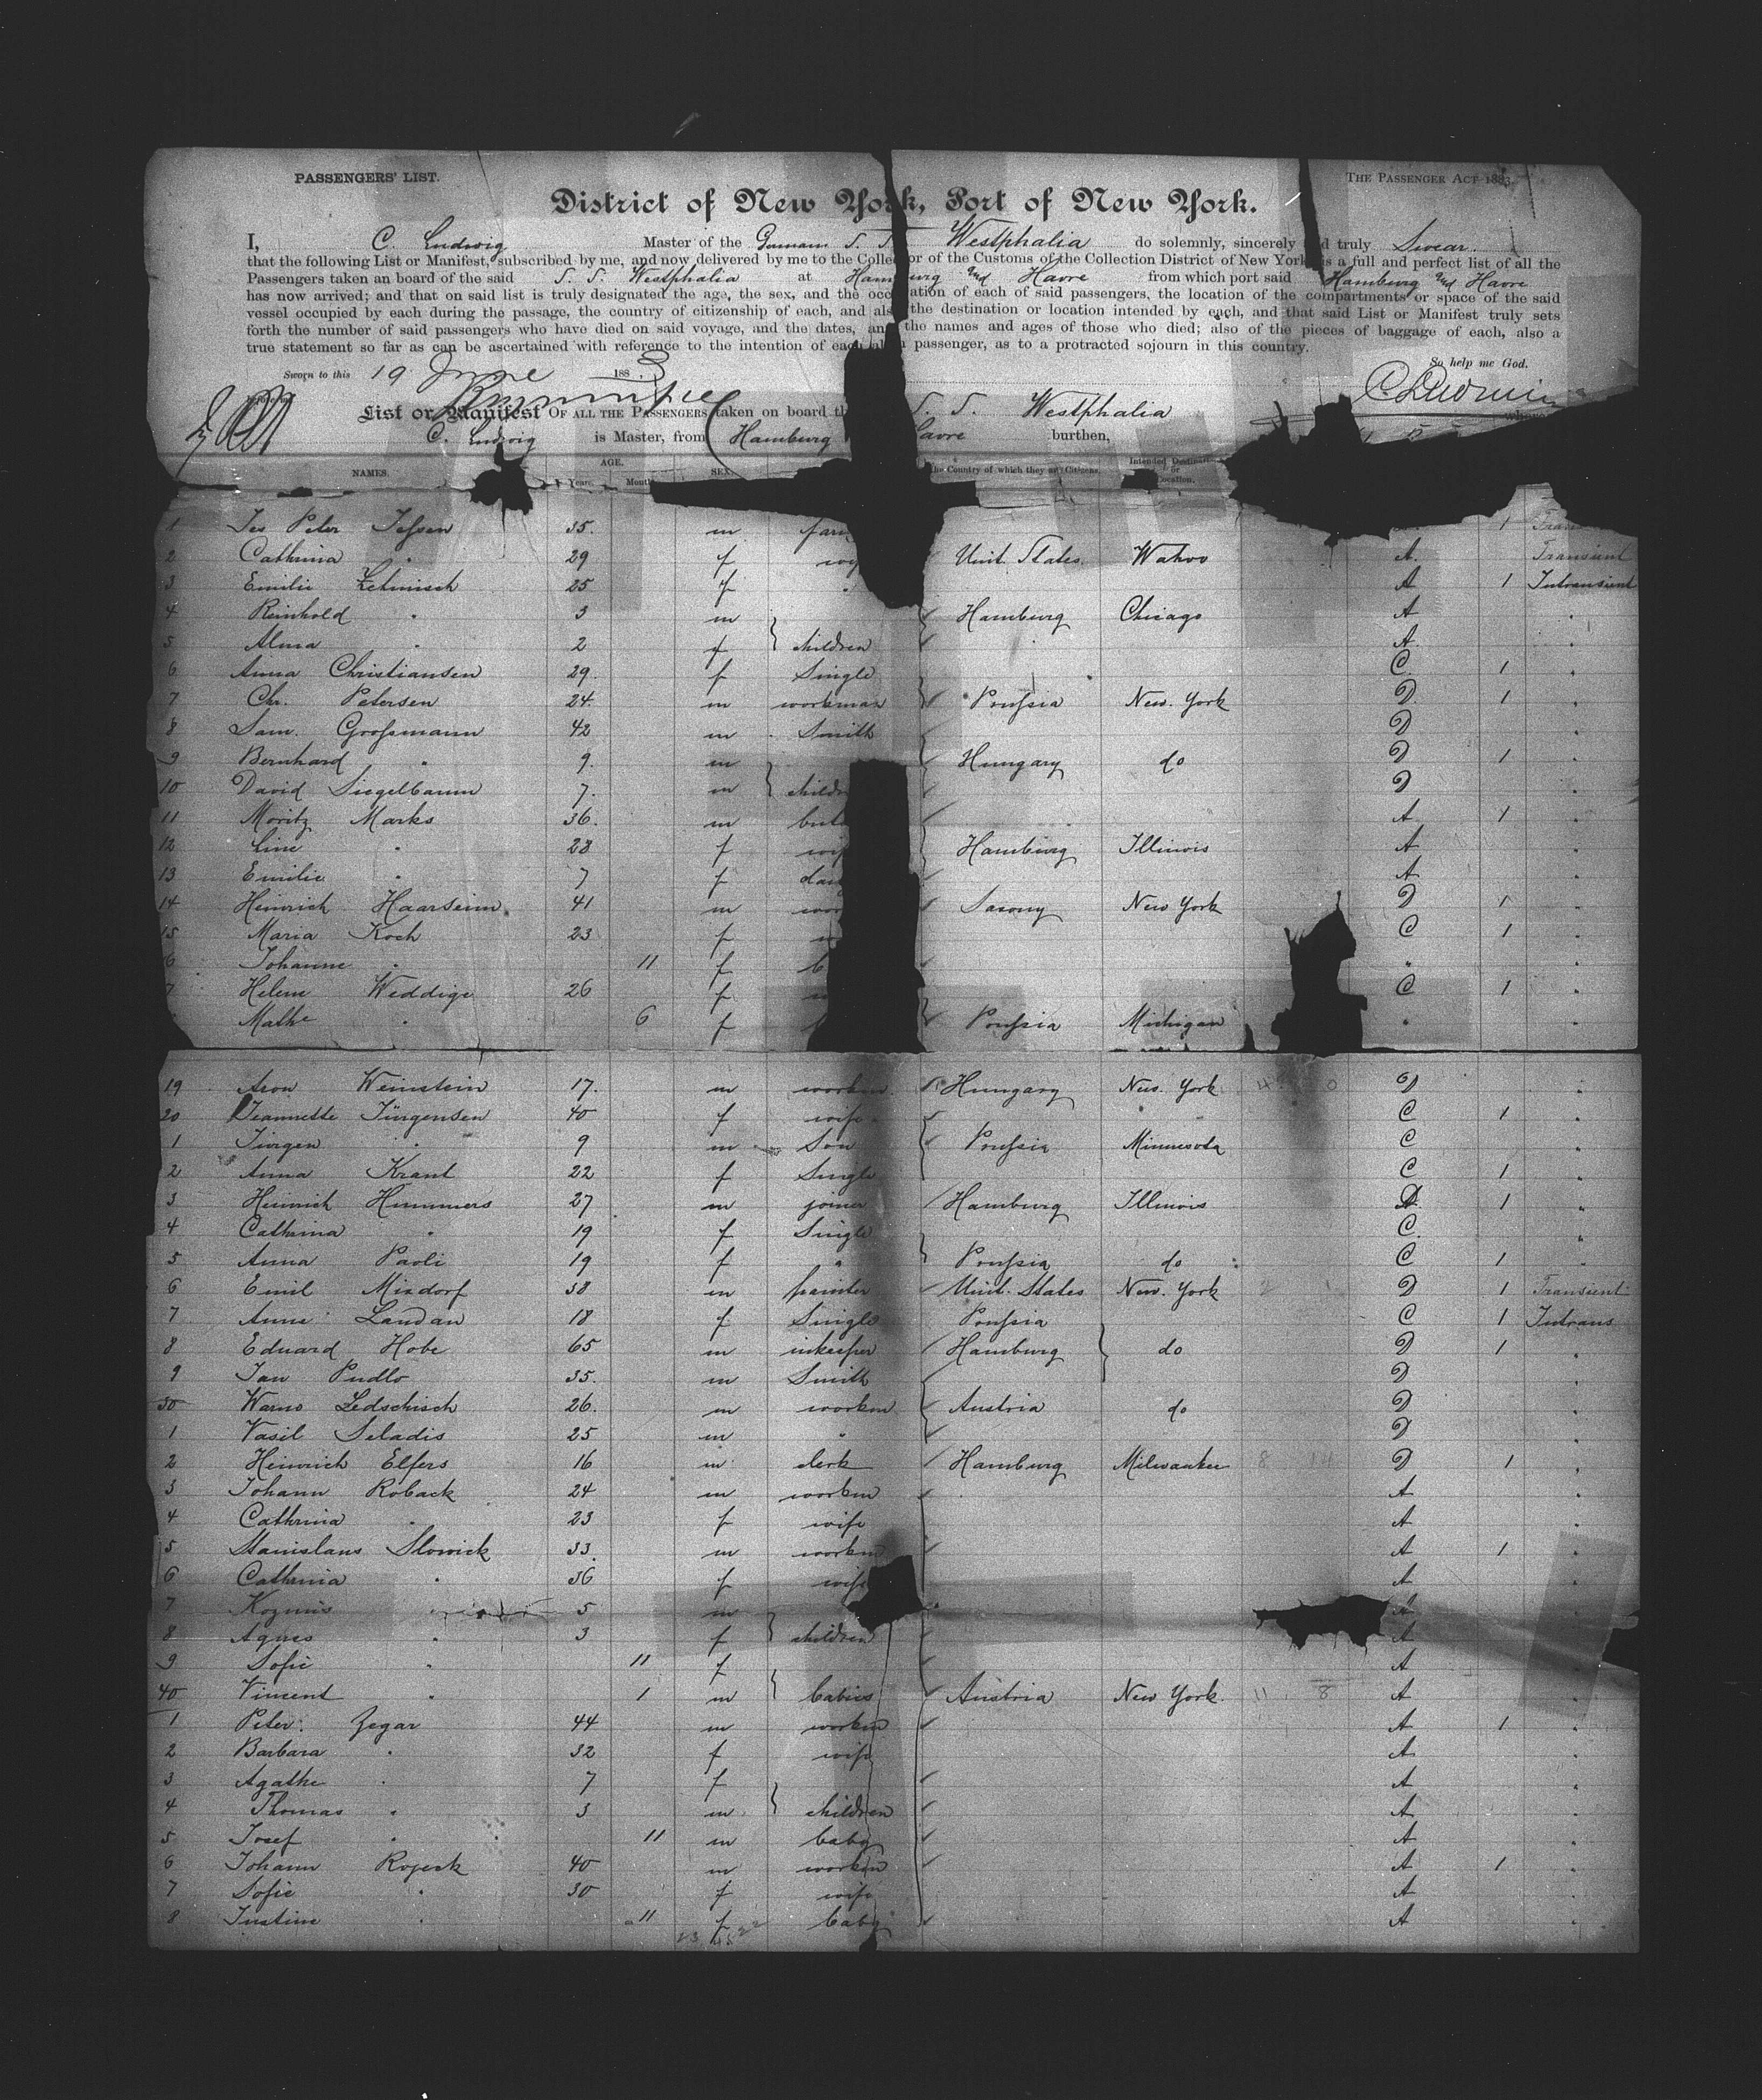 PASSENGERS' LIST. THE PASSENGER ACT 1883.
District of New York, Port of New York.
I, C. Ludwig Master of the German S. S. Westphalia do solemnly, sincerely and truly Swear
that the following List or Manifest, subscribed by me, and now delivered by me to the Collector of the Customs of the Collection District of New York, is a full and perfect list of all the
Passengers taken on board of the said S. S. Westphalia at Hamburg and Havre from which port said Hamburg and Havre
has now arrived; and that on said list is truly designated the age, the sex, and the occupation of each of said passengers, the location of the compartments or space of the said
vessel occupied by each during the passage, the country of citizenship of each, and also the destination or location intended by each, and that said List or Manifest truly sets
forth the number of said passengers who have died on said voyage, and the dates, and the names and ages of those who died; also of the pieces of baggage of each, also a
true statement so far as can be ascertained with reference to the intention of each alien passenger, as to a protracted sojourn in this country.
So help me God.
Sworn to this 19 June 1883
List or Manifest OF ALL THE PASSENGERS taken on board the S. S. Westphalia
C. Ludwig is Master, from Hamburg Havre burthen,
NAMES. AGE. Years. Months SEX the Country of which they are Citizens. Intended Destination or Location.
1 Jes Peter Jessen 35. m farm 1 Trans
2 Cathrina " 29 f wife Unit. States Wahoo A. Transient
3 Emilie Lehnisch 25 f " A 1 Intransient
4 Reinhold " 3 m Hamburg Chicago A "
5 Alma " 2 f children A "
6 Anna Christiansen 29. f Single C. 1 "
7 Chr. Petersen 24. m workman Prussia New York D. 1 "
8 Sam. Grossmann 42 m Smith D "
9 Bernhard " 9. m Hungary do D 1 "
10 David Siegelbaum 7. m children D "
11 Moritz Marks 36. m but A 1 "
12 Line " 28 f wife Hamburg Illinois A "
13 Emilie " 7 f dau A "
14 Heinrich Haarseim 41 m wor Saxony New York D 1 "
15 Maria Koch 23 f C 1 "
6 Johanne " 11 f b " "
7 Helene Weddige 26 f C 1 "
Malhe " 6 f Prussia Michigan " "
19 Aron Weinstein 17. m workm Hungary New York 4 0 D "
20 Jeannette Jürgensen 40 f wife C 1 "
1 Jürgen " 9 m Son Prussia Minnesota C "
2 Anna Krant 22 f Single C 1 "
3 Heinrich Hummers 27 m joiner Hamburg Illinois D 1 "
4 Cathrina " 19 f Single C. "
5 Anna Paoli 19 f " Prussia do C 1 "
6 Emil Mixdorf 38 m painter Unit. States New York 2 1 D 1 Transient
7 Anna Landan 18 f Single Prussia C 1 Intrans
8 Eduard Hobe 65 m inkeeper Hamburg do D 1 "
9 Jan Pudlo 35. m Smith D "
30 Warno Ledschisch 26. m workm Austria do D "
1 Vasil Seladis 25 m " D "
2 Heinrich Elfers 16 m clerk Hamburg Milwaukee 8 14 D 1 "
3 Johann Roback 24 m workm A "
4 Cathrina " 23 f wife A "
5 Stanislaus Slowick 33. m workm A 1 "
6 Cathrina " 36 f wife A
7 Kozmus " 5 m A
8 Agnes " 3 f children A
9 Sofie " 11 f A "
40 Vincent " 1 m babies Austria New York. 11 8 A "
1 Peter Zegar 44 m workm A 1 "
2 Barbara " 32 f wife A "
3 Agathe " 7 f A "
4 Thomas " 3 m children A "
5 Josef " 11 m baby A "
6 Johann Rojeck 40 m workm A 1 "
7 Sofie " 30 f wife A "
8 Justine " 11 f baby A "